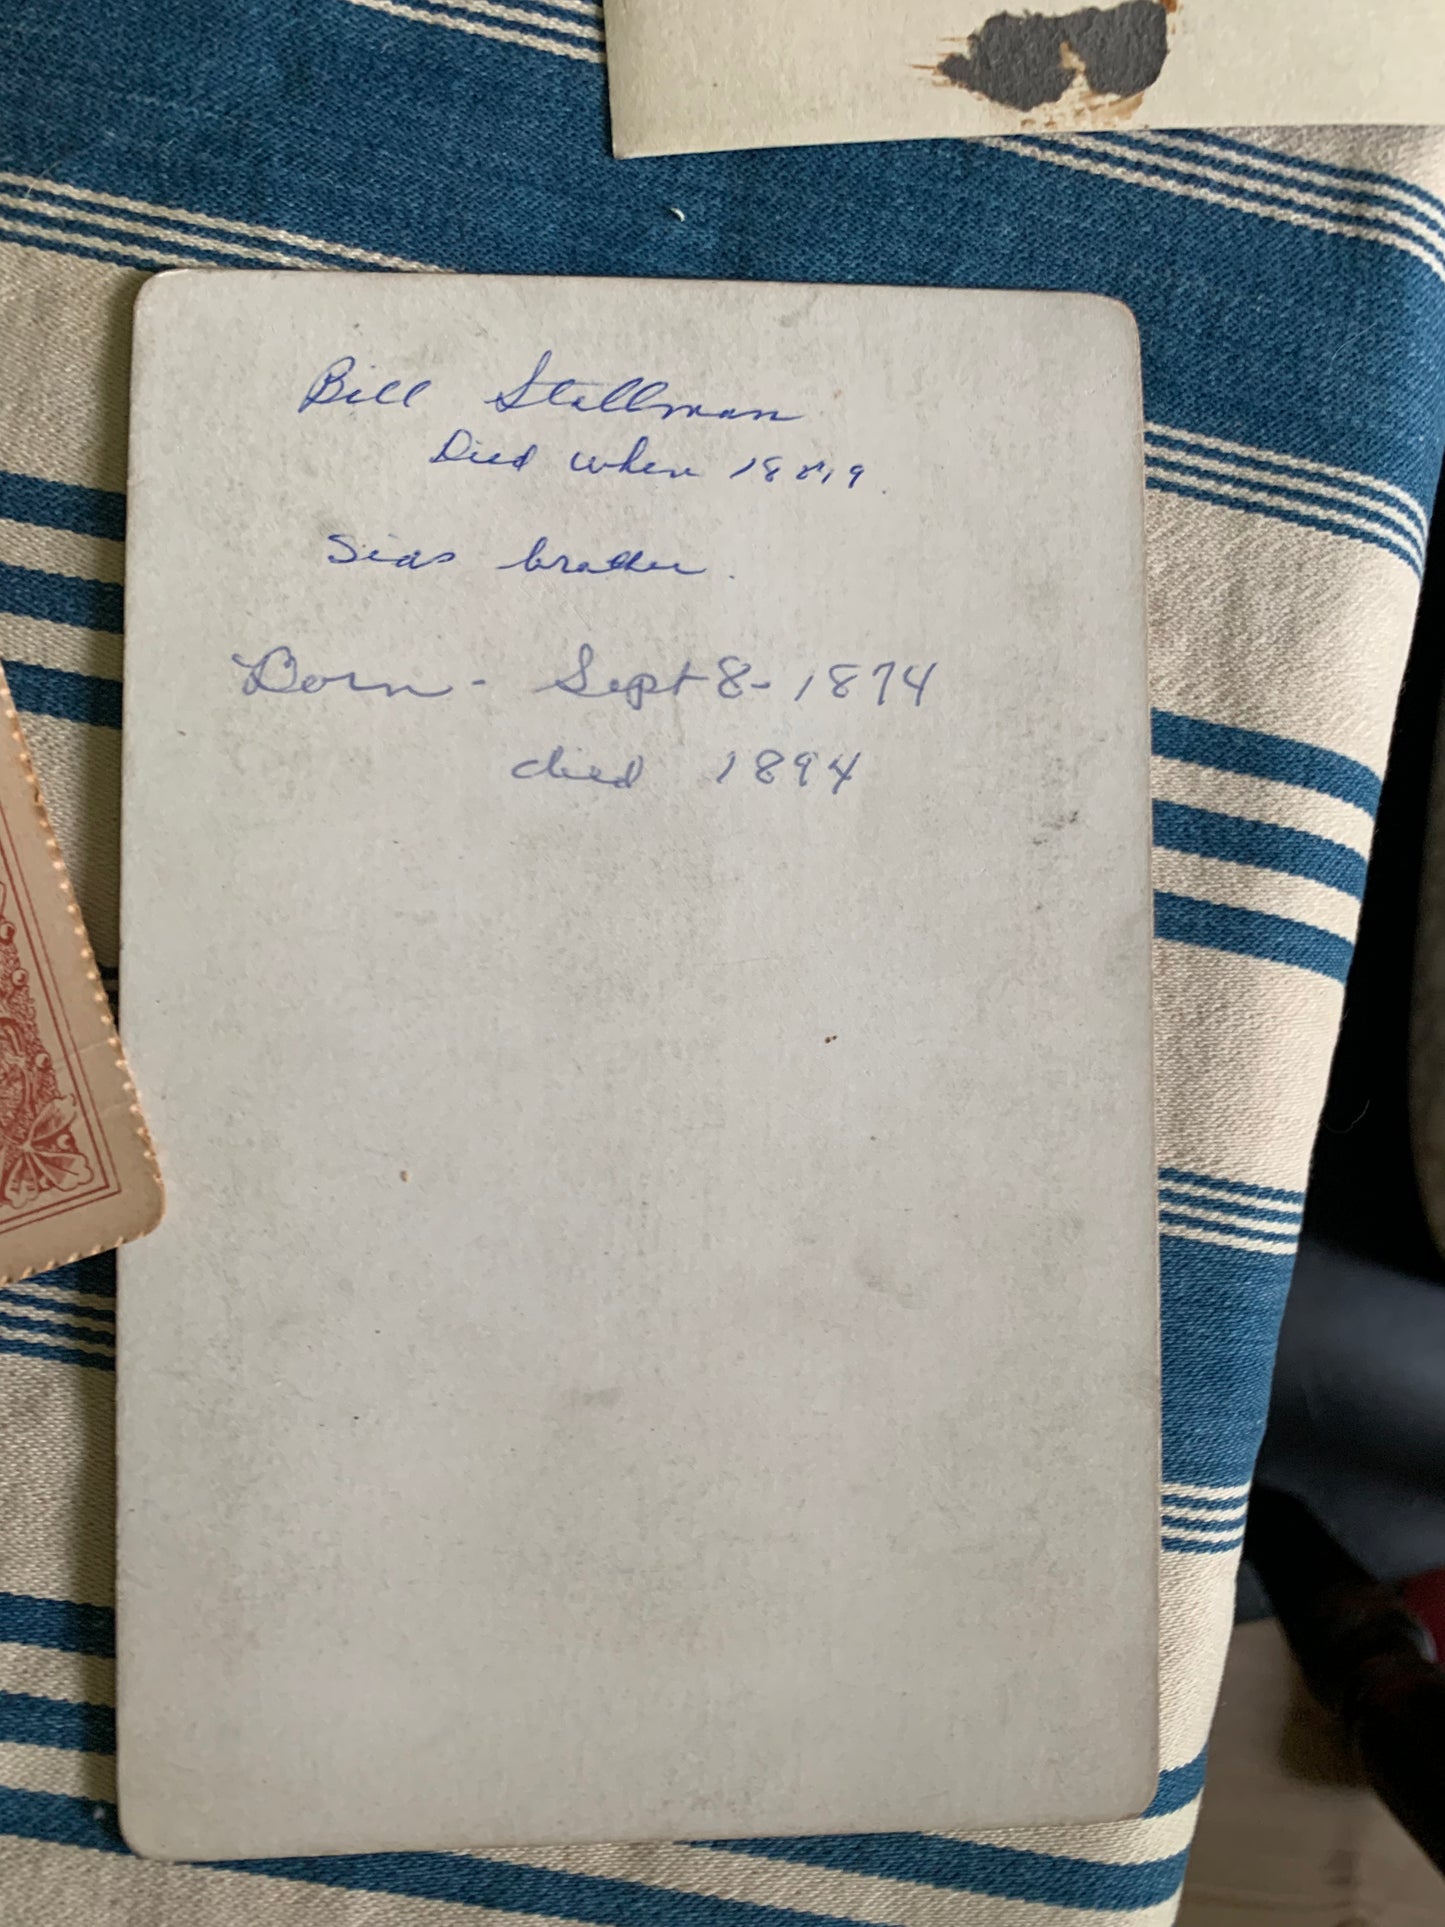 Bill Stallman
Died when 18 or 19.
Sids brother.
Born - Sept 8 - 1874
died 1894